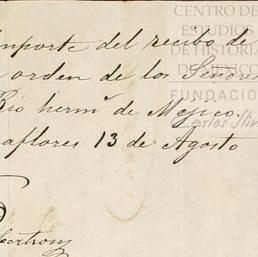 CENTRO DE
ESTUDIOS
DE HISTORIA
DE MÉXICO
FUNDACIÓN
Carlos Slim
importe del recibo de
orden de los Señores
Rio herm.s de Mejico.
aflores 13 de Agosto